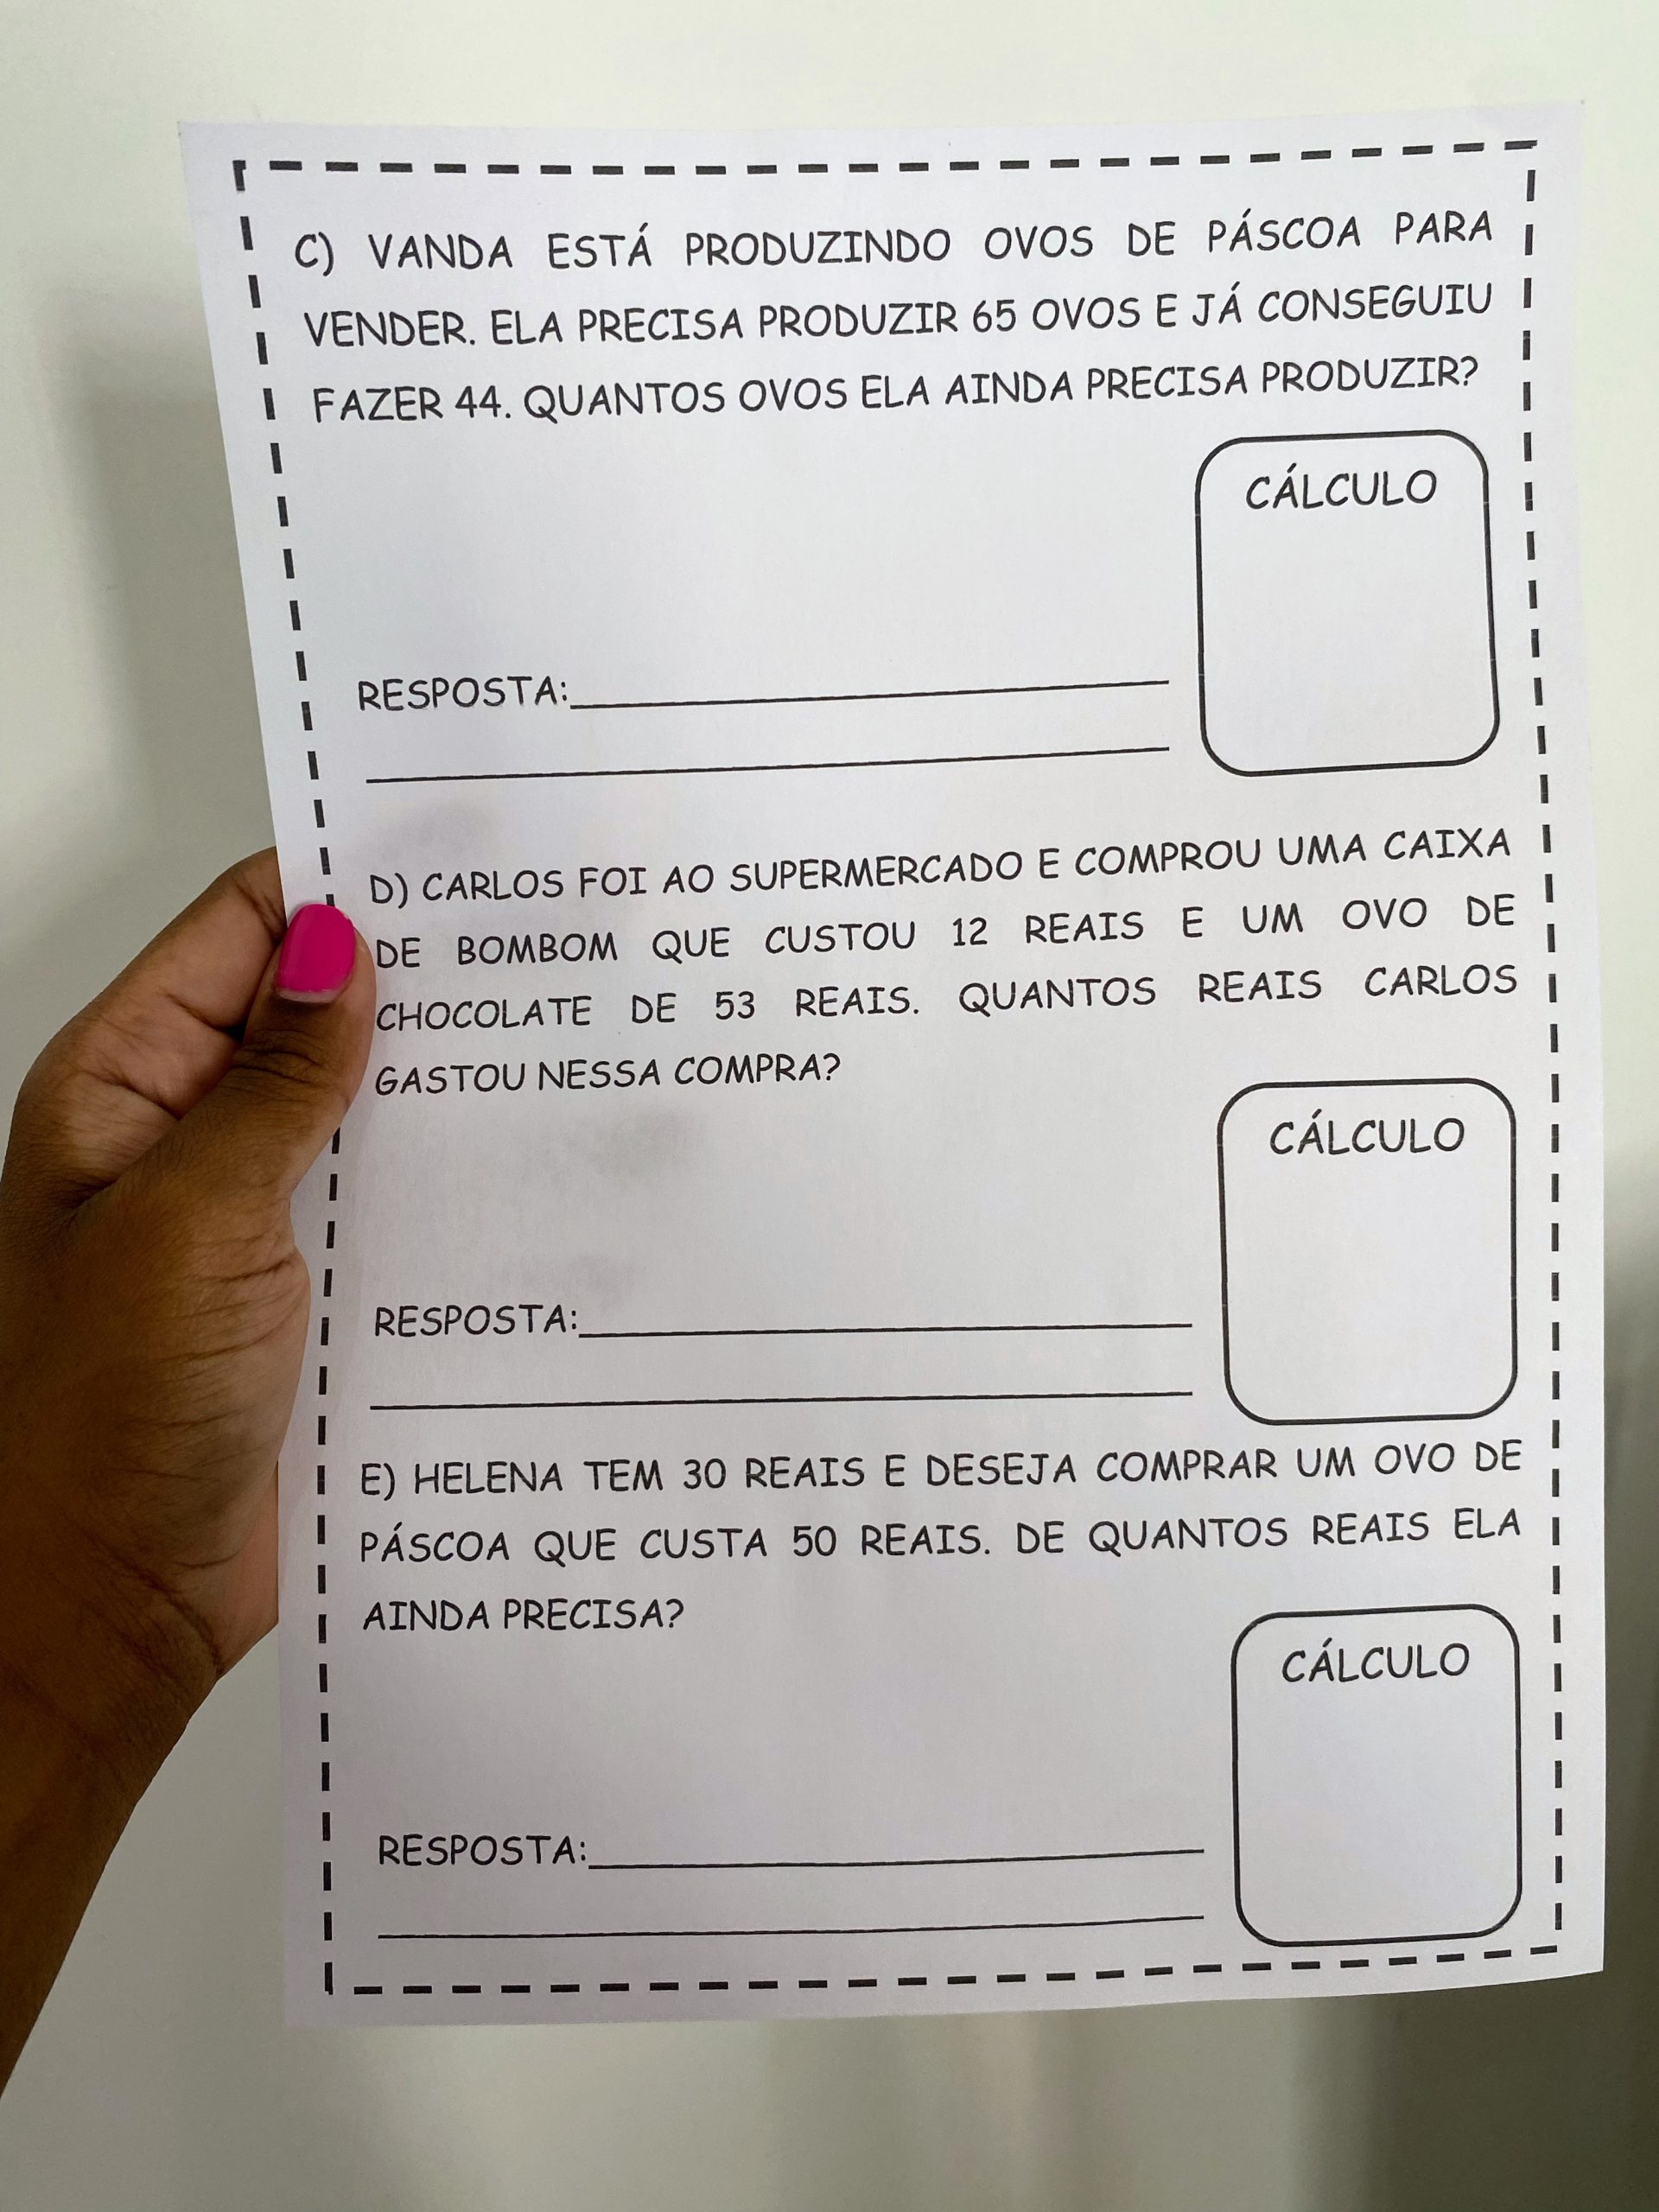 C) VANDA ESTÁ PRODUZINDO OVOS DE PÁSCOA PARA
VENDER. ELA PRECISA PRODUZIR 65 OVOS E JÁ CONSEGUIU
FAZER 44. QUANTOS OVOS ELA AINDA PRECISA PRODUZIR?
CÁLCULO
RESPOSTA:
D) CARLOS FOI AO SUPERMERCADO E COMPROU UMA CAIXA
DE BOMBOM QUE CUSTOU 12 REAIS E UM OVO DE
CHOCOLATE DE 53 REAIS. QUANTOS REAIS CARLOS
GASTOU NESSA COMPRA?
CÁLCULO
RESPOSTA:
E) HELENA TEM 30 REAIS E DESEJA COMPRAR UM OVO DE
PÁSCOA QUE CUSTA 50 REAIS. DE QUANTOS REAIS ELA
AINDA PRECISA?
CÁLCULO
RESPOSTA: